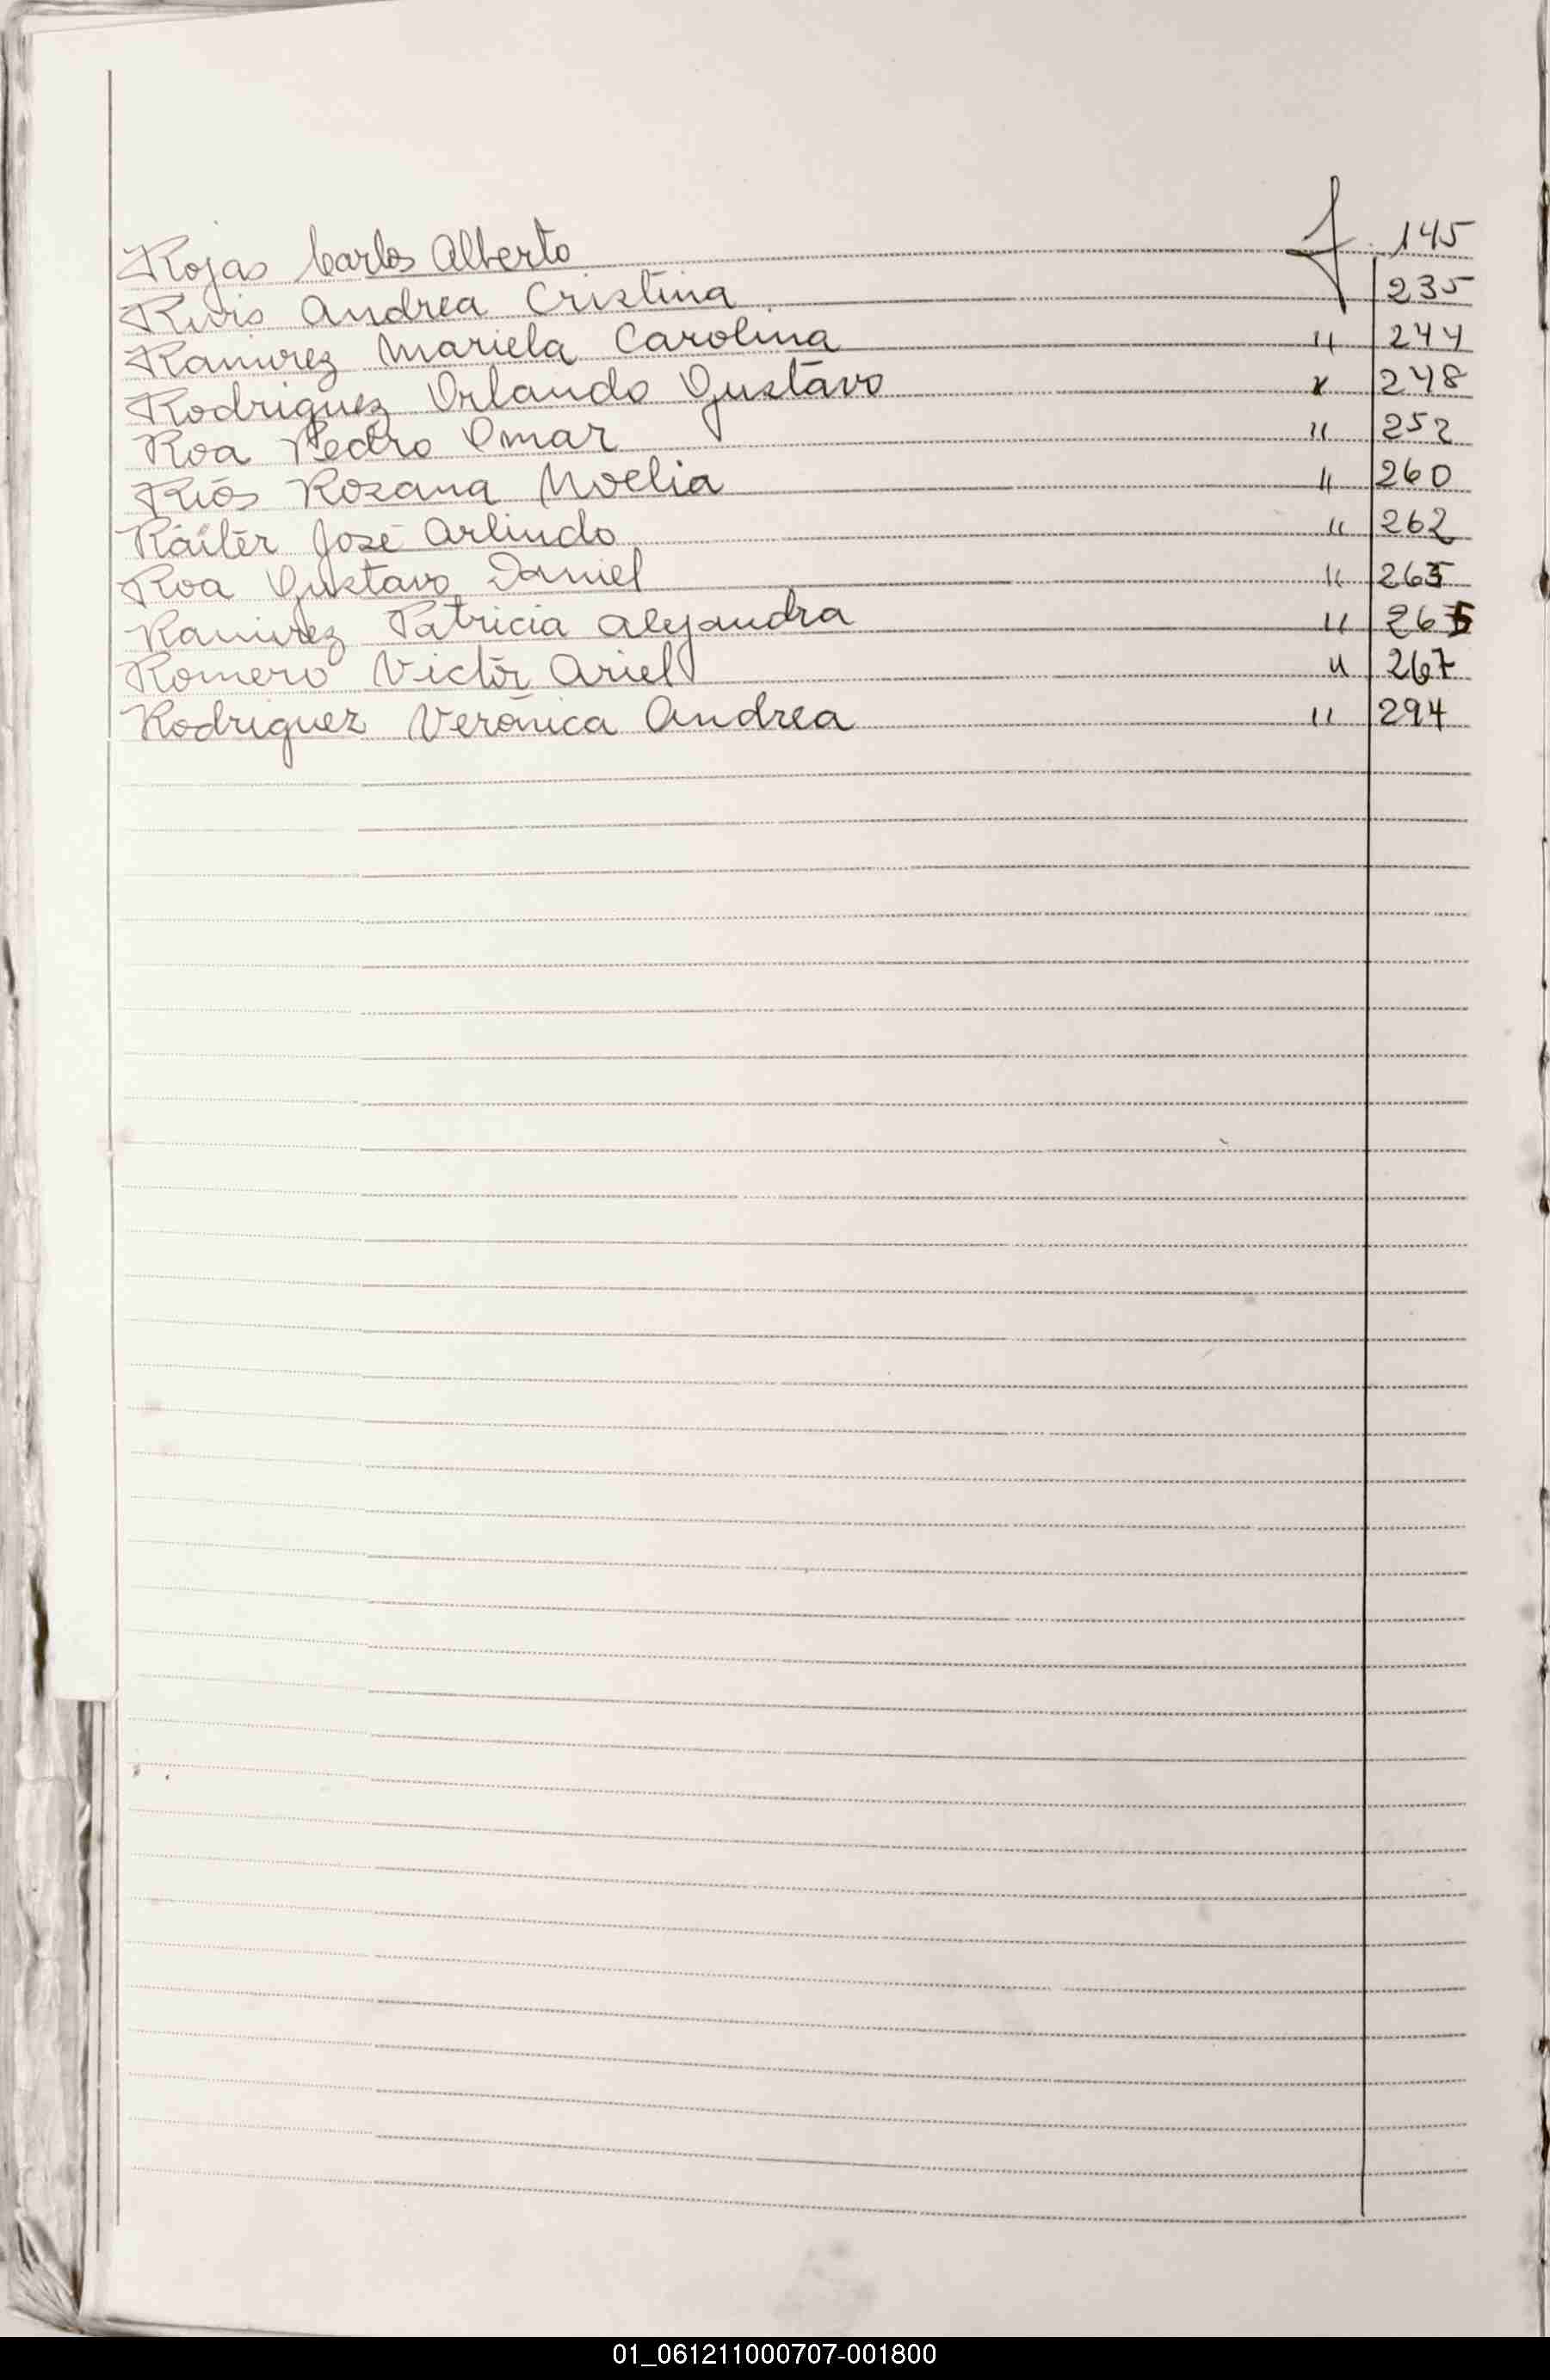 Rojas Carlos Alberto f. 145
Ruis Andrea Cristina 235
Ramirez Mariela Carolina " 244
Rodriguez Orlando Gustavo " 248
Roa Pedro Omar " 252
Ríos Rosana Noelia " 260
Ráiter José Arlindo " 262
Roa Gustavo Daniel " 265
Ramirez Patricia Alejandra " 265
Romero Victor Ariel " 267
Rodriguez Verónica Andrea " 294
01_061211000707-001800